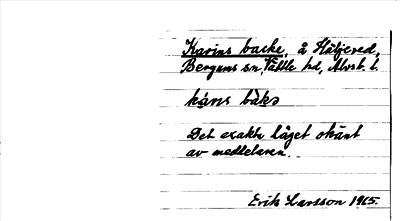 Karins backe, å Häljered,
Bergums sn, Vättle hd, Älvsb. l.
Det exakta läget okänt
av meddelaren.
Erik Larsson 1965.